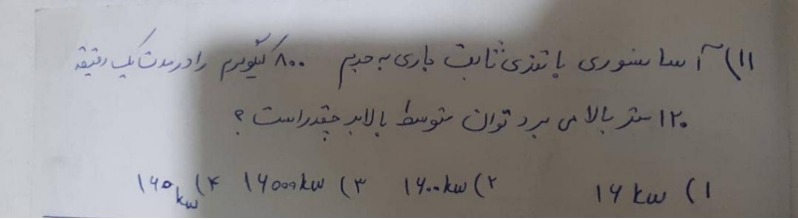 ۱۱) آسانسوری با تندی ثابت باری به جرم ۸۰۰ کیلوگرم را در مدت یک دقیقه
۱۲۰ متر بالا می برد توان متوسط بالابر چقدر است ؟
۱) ۱۶ kw ۲) ۱۶۰۰ kw ۳) ۱۶۰۰۰ kw ۴) ۱۶۰ kw